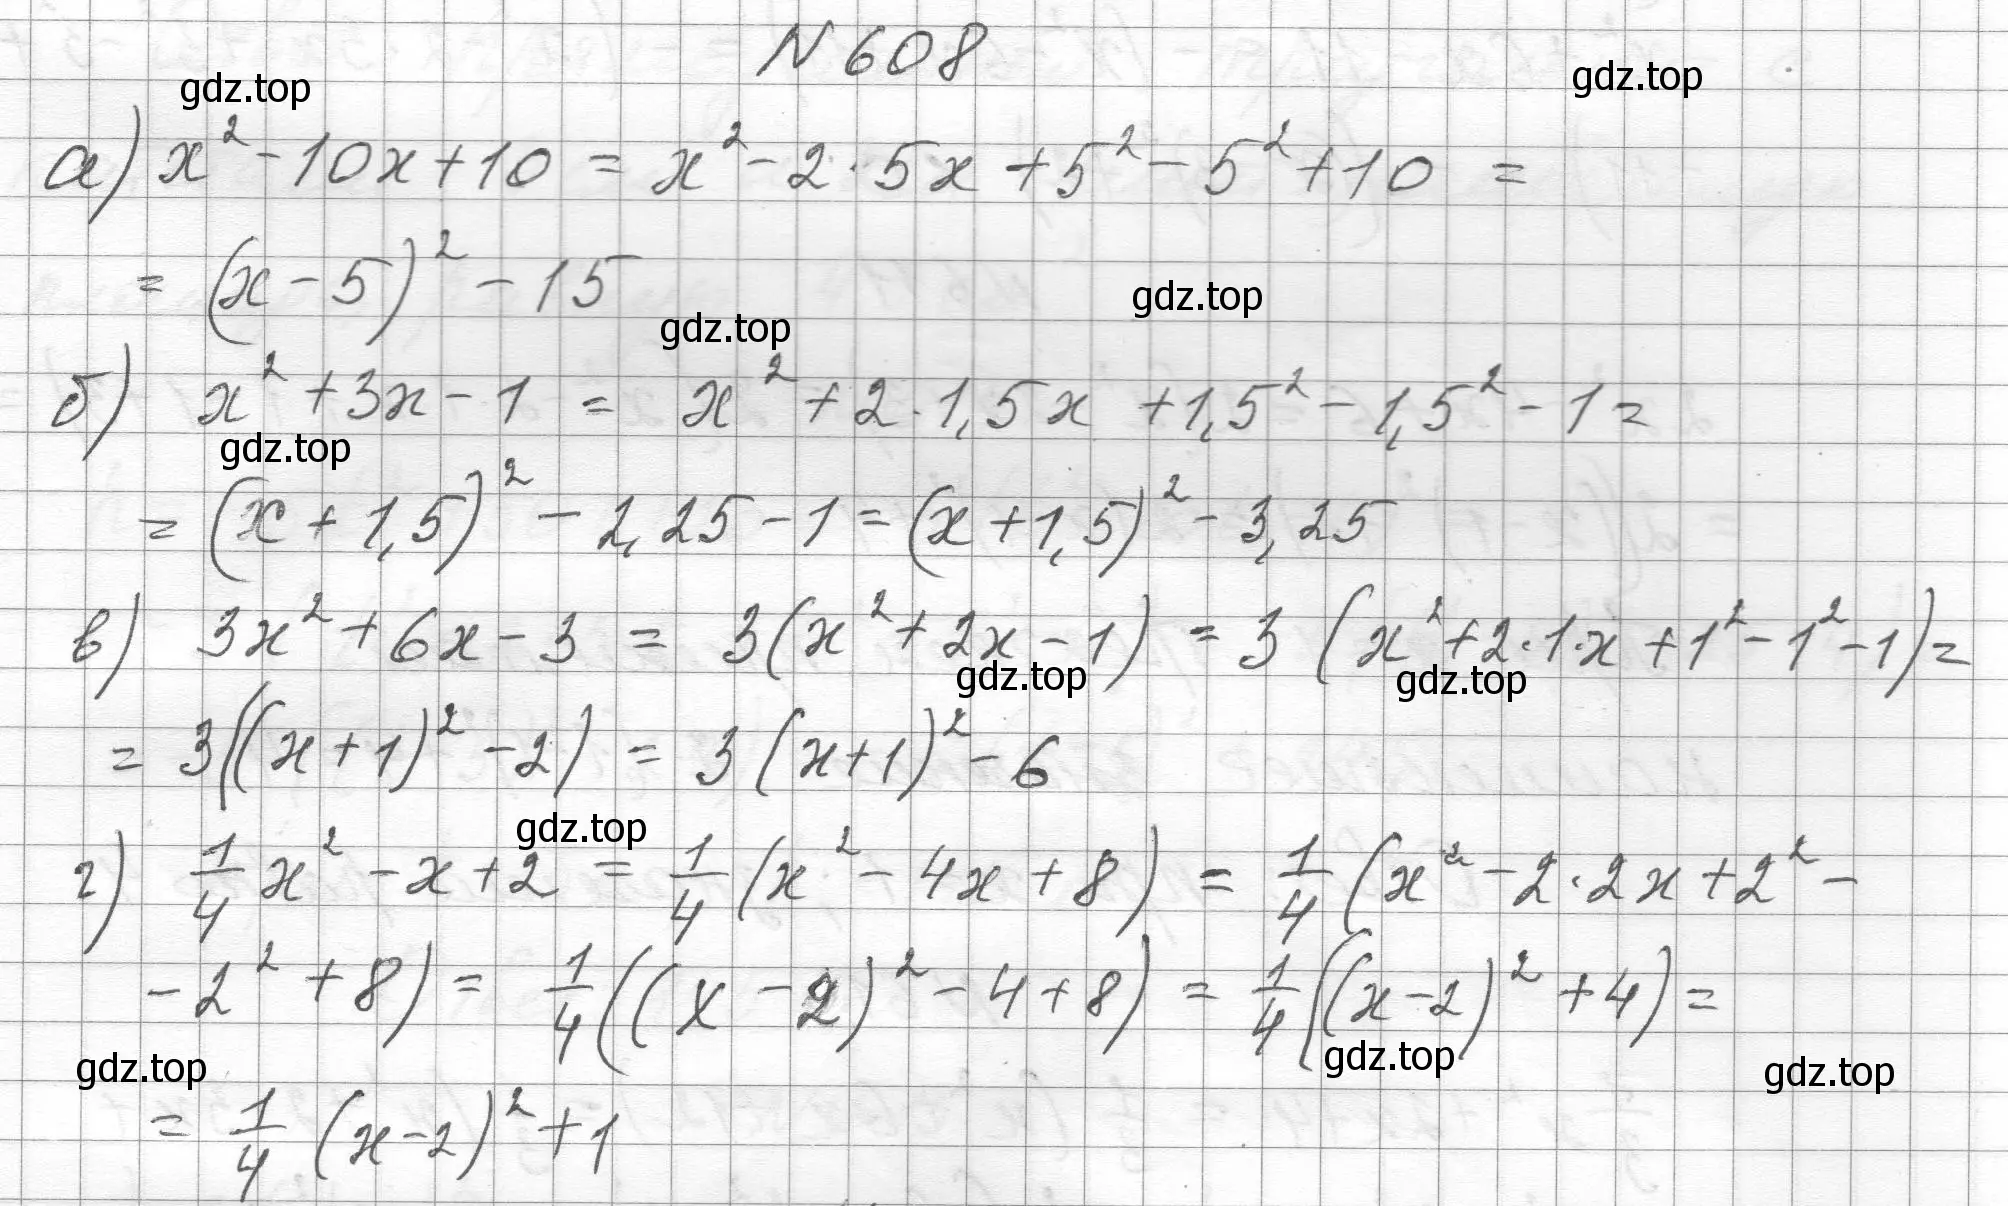 N 608
gdz.top
gdz.top
а) x² - 10x + 10 = x² - 2 · 5x + 5² - 5² + 10 =
= (x - 5)² - 15
gdz.top
gdz.top
б) x² + 3x - 1 = x² + 2 · 1,5x + 1,5² - 1,5² - 1 =
gdz.top
= (x + 1,5)² - 2,25 - 1 = (x + 1,5)² - 3,25
в) 3x² + 6x - 3 = 3(x² + 2x - 1) = 3 (x² + 2 · 1 · x + 1² - 1² - 1) =
gdz.top
gdz.top
= 3((x + 1)² - 2) = 3 (x + 1)² - 6
gdz.top
г) 1/4 x² - x + 2 = 1/4 (x² - 4x + 8) = 1/4 (x² - 2 · 2x + 2² -
- 2² + 8) = 1/4 ((x - 2)² - 4 + 8) = 1/4 ((x - 2)² + 4) =
gdz.top
gdz.top
gdz.top
= 1/4 (x - 2)² + 1